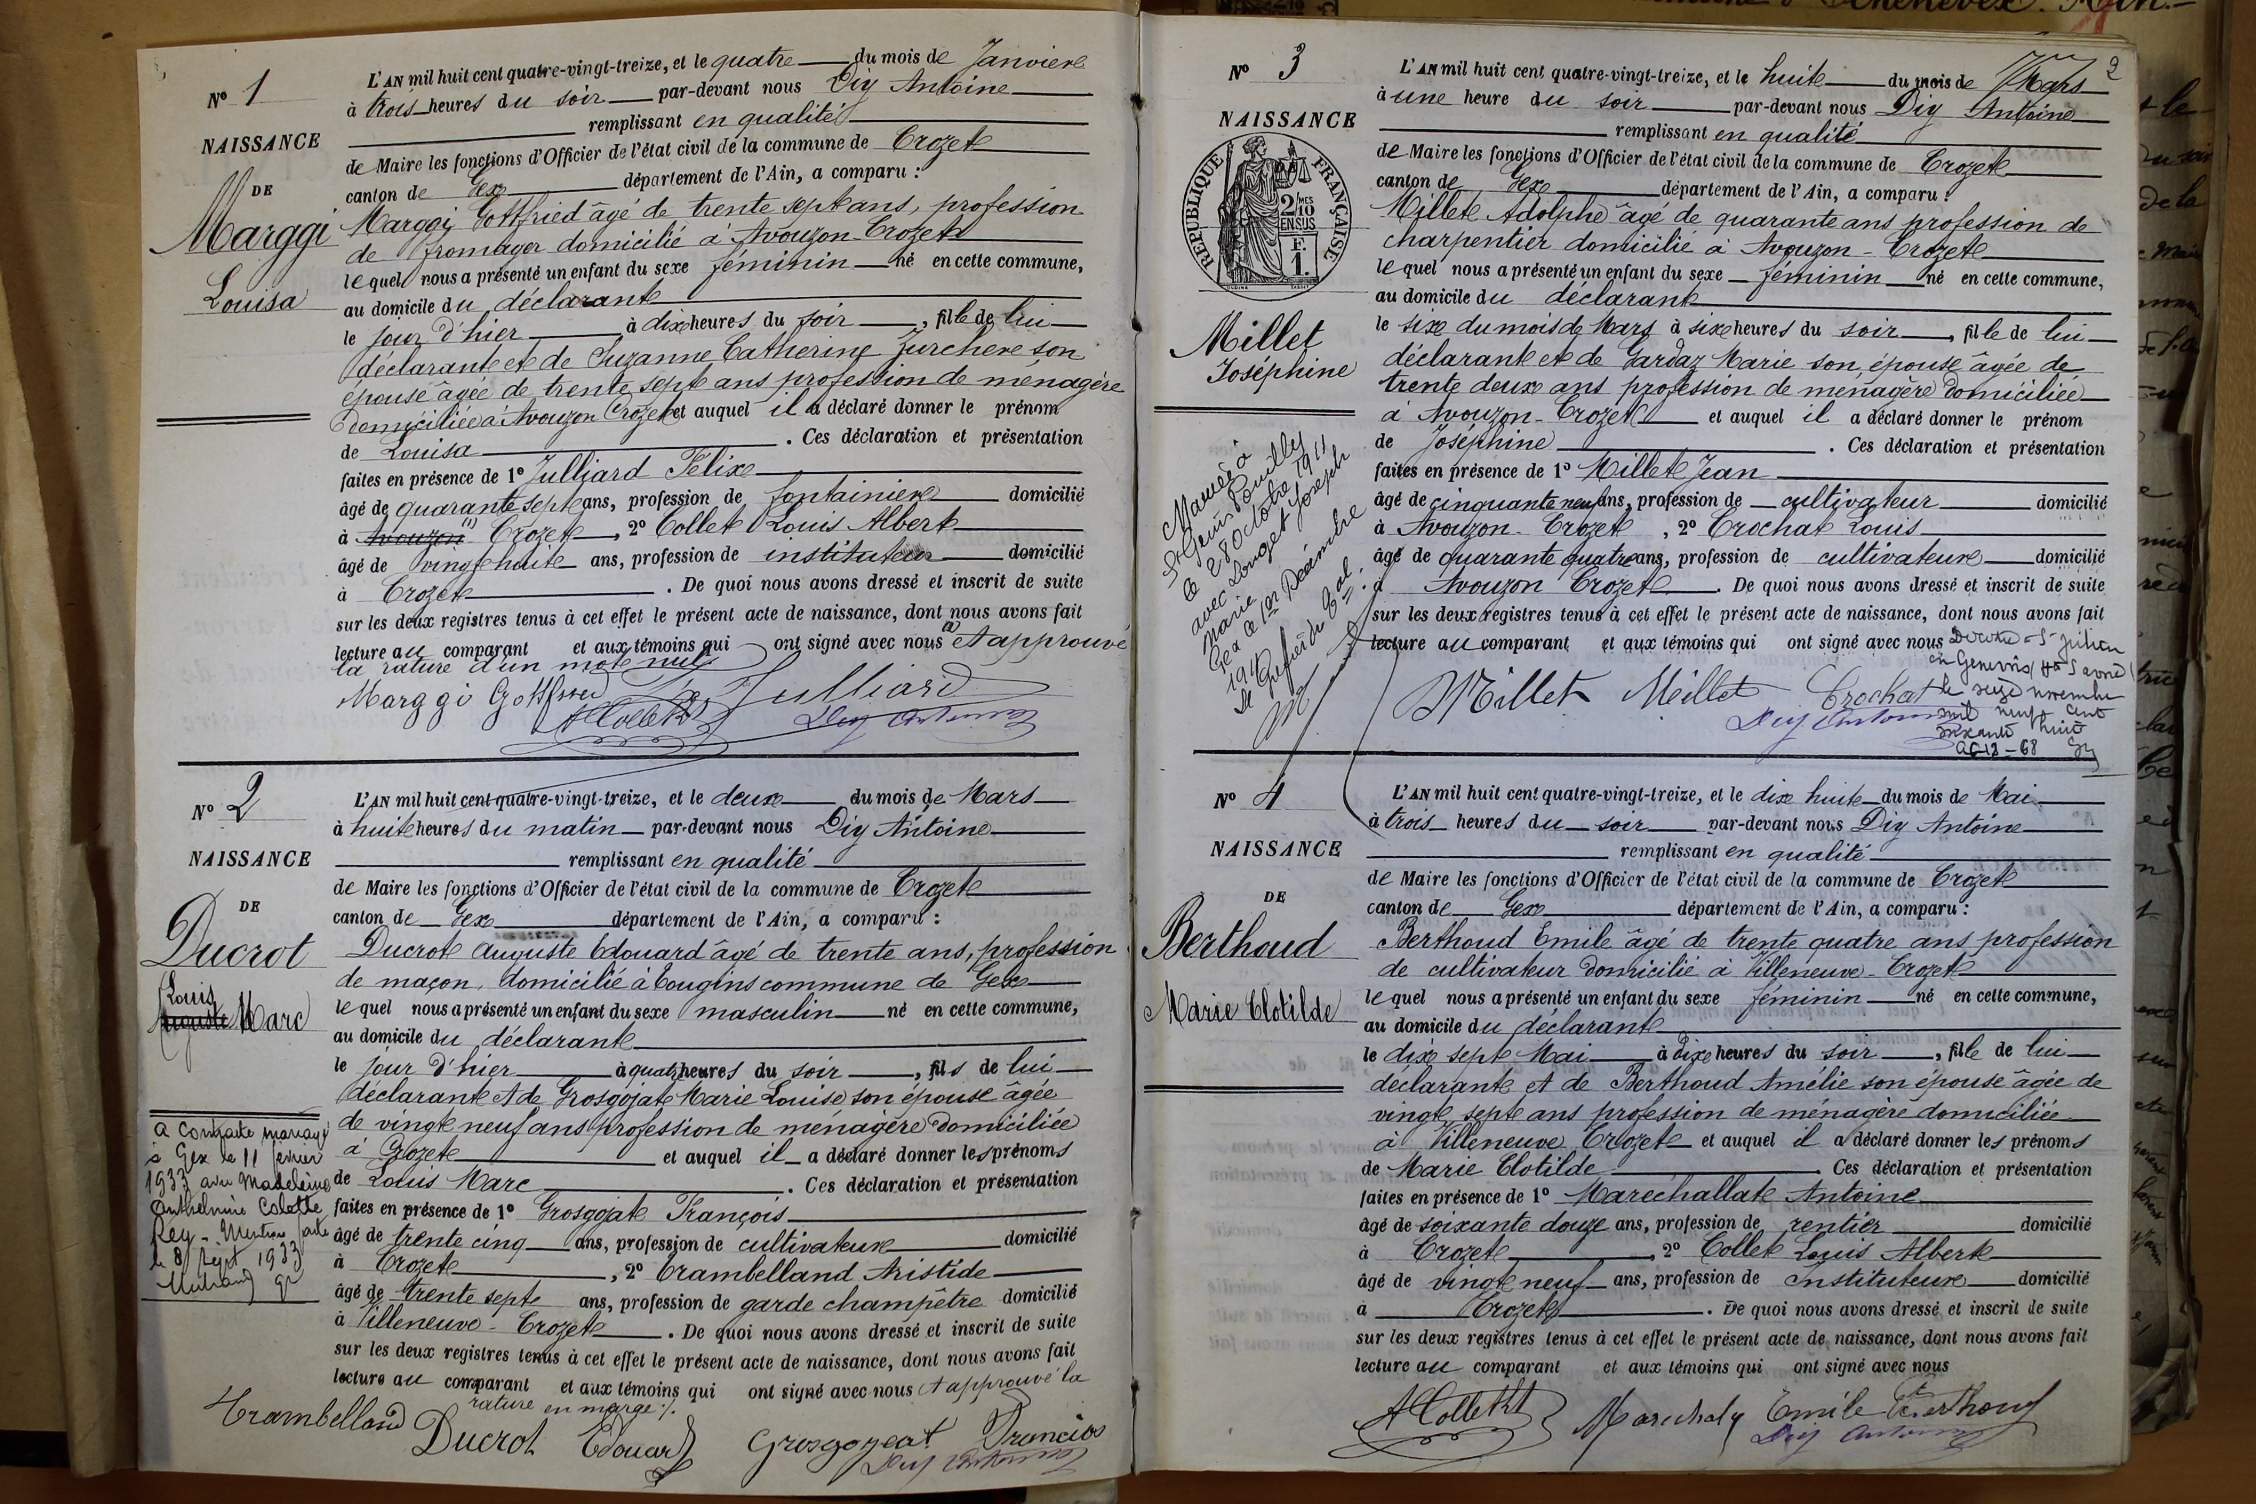 N° 1
NAISSANCE
DE
Marggi
Louisa
L'AN mil huit cent quatre-vingt-treize, et le quatre du mois de Janvier
à trois heures du soir par-devant nous Diy Antoine
remplissant en qualité
de Maire les fonctions d'Officier de l'état civil de la commune de Crozet
canton de Gex département de l'Ain, a comparu :
Marggi Gottfried âgé de trente sept ans, profession
de fromager domicilié à Avouzon-Crozet
lequel nous a présenté un enfant du sexe féminin né en cette commune,
au domicile du déclarant
le jour d'hier à dix heures du soir, fille de lui
déclarant et de Suzanne Catherine Zurcher son
épouse âgée de trente sept ans profession de ménagère
domiciliée à Avouzon Crozet et auquel il a déclaré donner le prénom
de Louisa. Ces déclaration et présentation
faites en présence de 1° Julliard Félix
âgé de quarante sept ans, profession de fontainier domicilié
à Avouzon (1) Crozet, 2° Collet Louis Albert
âgé de vingt huit ans, profession de instituteur domicilié
à Crozet. De quoi nous avons dressé et inscrit de suite
sur les deux registres tenus à cet effet le présent acte de naissance, dont nous avons fait
lecture au comparant et aux témoins qui ont signé avec nous (1) et approuvé
la rature d'un mot nul
Marggi Gottfried Julliard
A Collet Diy Antoine
N° 2
NAISSANCE
DE
Ducrot
Louis
Auguste Marc
L'AN mil huit cent quatre-vingt-treize, et le deux du mois de Mars
à huit heures du matin par-devant nous Diy Antoine
remplissant en qualité
de Maire les fonctions d'Officier de l'état civil de la commune de Crozet
canton de Gex département de l'Ain, a comparu :
Ducrot Auguste Edouard âgé de trente ans, profession
de maçon, domicilié à Tougins commune de Gex
lequel nous a présenté un enfant du sexe masculin né en cette commune,
au domicile du déclarant
le jour d'hier à quatre heures du soir, fils de lui
déclarant et de Grosgojat Marie Louise son épouse âgée
de vingt neuf ans profession de ménagère domiciliée
à Crozet et auquel il a déclaré donner les prénoms
de Louis Marc. Ces déclaration et présentation
faites en présence de 1° Grosgojat François
âgé de trente cinq ans, profession de cultivateur domicilié
à Crozet, 2° Trambelland Aristide
âgé de trente sept ans, profession de garde champêtre domicilié
à Villeneuve-Crozet. De quoi nous avons dressé et inscrit de suite
sur les deux registres tenus à cet effet le présent acte de naissance, dont nous avons fait
lecture au comparant et aux témoins qui ont signé avec nous et approuvé la
rature en marge ./.
Trambelland Ducrot Edouard Grosgogeat François
Diy Antoine
a contracté mariage
à Gex le 11 février
1933 avec Madeleine
Anthelmine Colette
Rey - Mention faite
le 8 Sept 1933
N° 3
NAISSANCE
RÉPUBLIQUE FRANÇAISE
2/10 MES EN SUS
F. 1.
Millet
Joséphine
2
L'AN mil huit cent quatre-vingt-treize, et le huit du mois de Mars
à une heure du soir par-devant nous Diy Antoine
remplissant en qualité
de Maire les fonctions d'Officier de l'état civil de la commune de Crozet
canton de Gex département de l'Ain, a comparu :
Millet Adolphe âgé de quarante ans profession de
charpentier domicilié à Avouzon-Crozet
lequel nous a présenté un enfant du sexe féminin né en cette commune,
au domicile du déclarant
le six du mois de Mars à six heures du soir, fille de lui
déclarant et de Gardaz Marie son épouse âgée de
trente deux ans profession de ménagère domiciliée
à Avouzon-Crozet et auquel il a déclaré donner le prénom
de Joséphine. Ces déclaration et présentation
faites en présence de 1° Millet Jean
âgé de cinquante neuf ans, profession de cultivateur domicilié
à Avouzon-Crozet, 2° Crochat Louis
âgé de quarante quatre ans, profession de cultivateur domicilié
à Avouzon Crozet. De quoi nous avons dressé et inscrit de suite
sur les deux registres tenus à cet effet le présent acte de naissance, dont nous avons fait
lecture au comparant et aux témoins qui ont signé avec nous
Millet Millet Crochat
Diy Antoine
Décédée à St Julien
en Genevois (Hte Savoie)
le seize novembre
mil neuf cent
soixante huit
Mariée à
St Genis Pouilly
le 28 octobre 1911
avec Longet Joseph
Marie
Gex le 1er Décembre
1911
Le Greffier du Gal.
N° 4
NAISSANCE
DE
Berthoud
Marie Clotilde
L'AN mil huit cent quatre-vingt-treize, et le dix huit du mois de Mai
à trois heures du soir par-devant nous Diy Antoine
remplissant en qualité
de Maire les fonctions d'Officier de l'état civil de la commune de Crozet
canton de Gex département de l'Ain, a comparu :
Berthoud Emile âgé de trente quatre ans profession
de cultivateur domicilié à Villeneuve-Crozet
lequel nous a présenté un enfant du sexe féminin né en cette commune,
au domicile du déclarant
le dix sept Mai à dix heures du soir, fille de lui
déclarant et de Berthoud Amélie son épouse âgée de
vingt sept ans profession de ménagère domiciliée
à Villeneuve Crozet et auquel il a déclaré donner les prénoms
de Marie Clotilde. Ces déclaration et présentation
faites en présence de 1° Maréchallat Antoine
âgé de soixante douze ans, profession de rentier domicilié
à Crozet, 2° Collet Louis Albert
âgé de vingt neuf ans, profession de Instituteur domicilié
à Crozet. De quoi nous avons dressé et inscrit de suite
sur les deux registres tenus à cet effet le présent acte de naissance, dont nous avons fait
lecture au comparant et aux témoins qui ont signé avec nous
A Collet Emile Berthoud
Diy Antoine